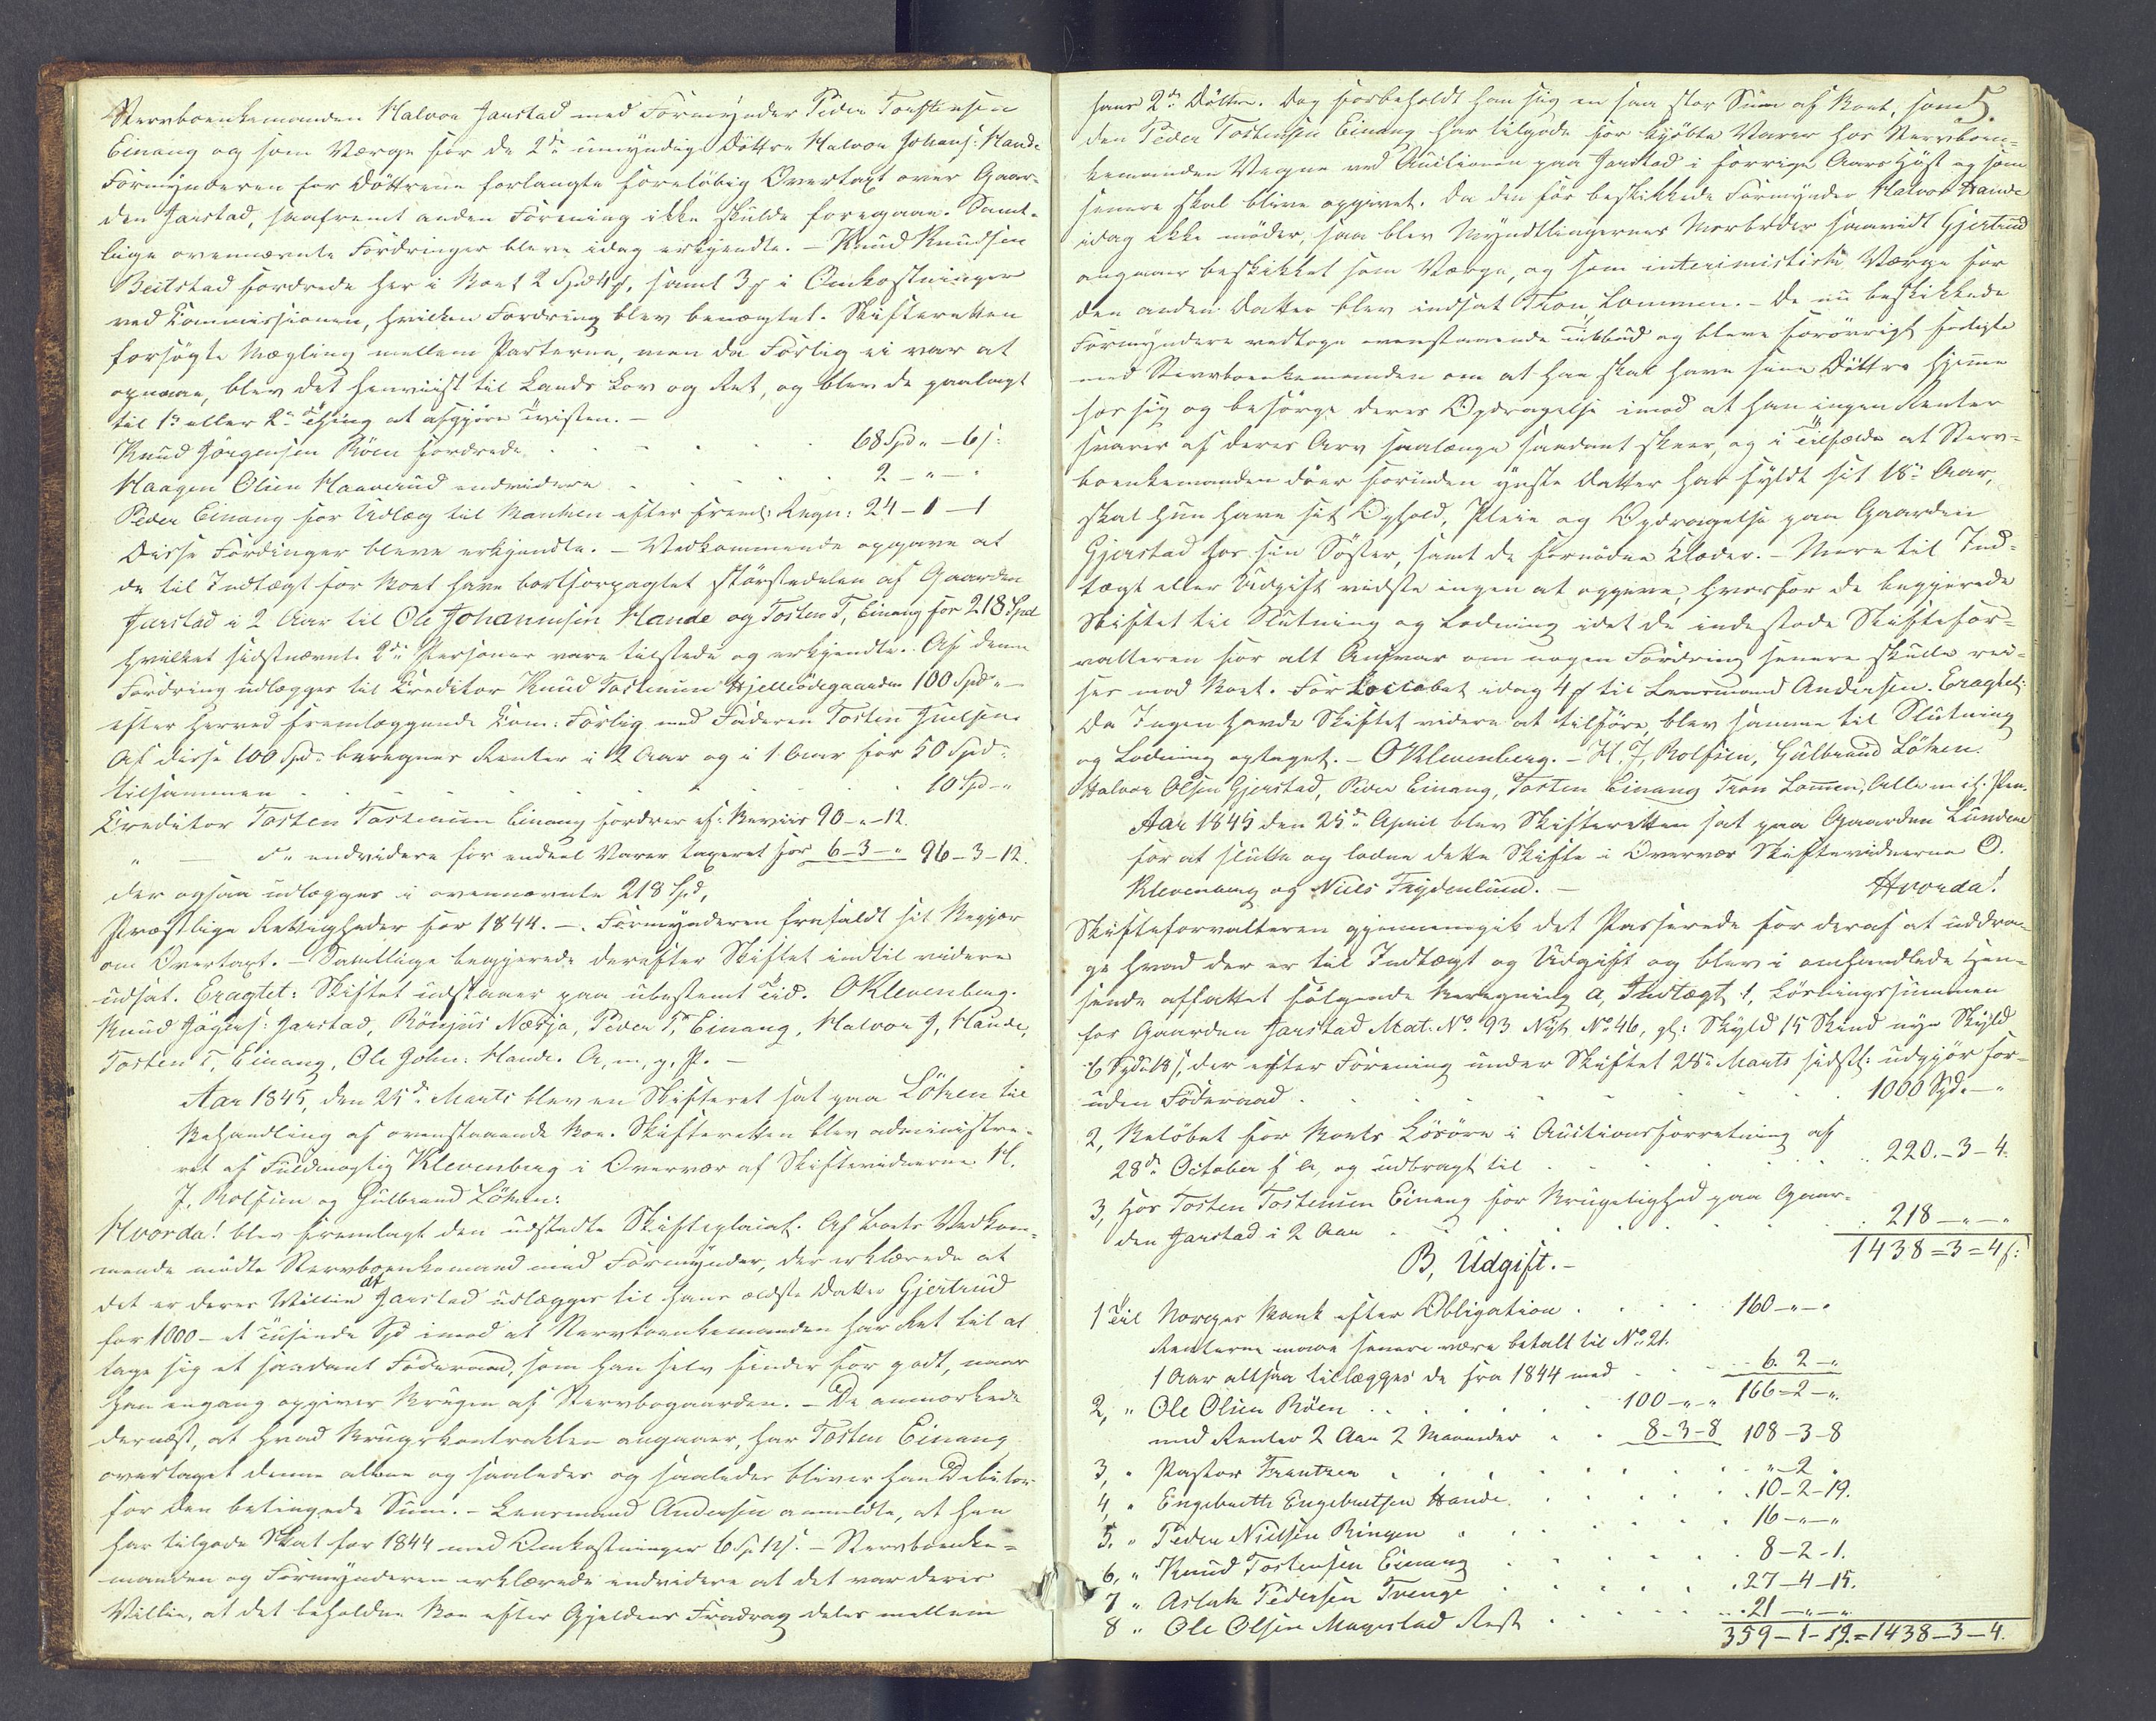 Stervboenkemanden Halvor Jarstad med Formynder Peder Torstensen
Einang og som Værge for de 2de umyndige Döttre Halvor Johans: Hande
Formynderen for Döttrene forlangte foreløbig Overtaxt over Gaar-
den Jarstad, saafremt anden Forening ikke skulde foregaae. Samt-
lige ovennævnte Fordringer bleve idag erkjendte. - Knud Knudsen
Beitstad fordrede her i Boet 2 Spd 4 ß, samt 3 ß i Omkostninger
ved Commissionen, hvilken Fordring blev benægtet. Skifteretten
forsögte Mægling mellem Parterne, men da Forlig ei var at
opnaae, blev det henviist til Lands Lov og Ret, og blev de paalagt
til 1ste eller 2det Thing at afgjöre Tvisten. -
Knud Jörgensen Röen fordrede . . . 68 Spd " - 6 ß:
Haagen Olsen Haavrud endvidere . . . 2 - " - "
Peder Einang for Udlæg til Banken efter freml: Regn: 24 - 1 - 1
Disse Fordinger bleve erkjendte. - Vedkommende opgave at
de til Indtægt for Boet have bortforpagtet störstedelen af Gaarden
Jarstad i 2 Aar til Ole Johannesen Hande og Tosten T, Einang for 218 Spd
hvilket sidstnævnte 2de Personer vare tilstede og erkjendte. Af denne
Fordring udlægges til Creditor Knud Tostensen Hjelleödegaarden 100 Spd " -
efter herved fremlæggende Com: Forlig med Faderen Tosten
Af disse 100 Spd beregnes Renter i 2 Aar og i 1 Aar for 50 Spd
tilsammen . . . 10 Spd - "
Creditor Tosten Tostensen Einang fordrer ef: Beviis 90 - " - 12.
" - do endvidere for endeel Varer taxeret for 6 - 3 - " 96 - 3 - 12.
der ogsaa udlægges i ovennævnte 218 Spd,
Præstlige Rettigheder for 1844. - . Formynderen frafaldt sit Begjær
om Overtaxt. - Samtlige begjerede derefter Skiftet indtil videre
udsat. Eragtet: Skiftet udstaaer paa ubestemt Tid. O Klevenberg.
Knud Jarstad, Næsja, Peder T, Einang, Halvor J, Hande,
Tosten T, Einang, Ole John: Hande. A, m, p, P. -
Aar 1845, den 25de Marts blev en Skifteret sat paa Löken til
Behandling af ovenstaaende Boe. Skifteretten blev administre-
ret af Fuldmægtig Klevenberg i Overvær af Skiftevidnerne H.
J, Rolfsen og Gulbrand Löken:
Hvorda! blev fremlagt den udstedte Skifteplacat. Af Boets Vedkom-
mende mödte Stervboenkemand med Formynder, der erklærede at
det er deres Villie at Jarstad udlægges til hans ældste Datter Gjertrud
for 1000 - et Tusinde Spd imod at Stervboenkemanden har Ret til at
tage sig et saadant Föderaad, som han selv finder for godt, naar
han engang opgiver Brugen af Stervbogaarden. - De anmærkede
dernæst, at hvad Brugskontrakten angaaer, har Tosten Einang
overtaget denne alene og saaledes og saaledes bliver han Debitor
for den betingede Sum. - Lensmand Andersen anmeldte, at han
har tilgode Skat for 1844 med Omkostninger 6 Sp: 12 ß. - Stervboenke-
manden og Formynderen erklærede endvidere at det var deres
Villie, at det beholdne Boe efter Gjeldens Fradrag deles mellem
5.
hans 2de Döttre. Dog forbeholdt han sig en saa stor Sum af Boet, som
den Peder Tostensen Einang har tilgode for kjöbte Varer hos Stervboen-
kemanden Vegne ved Auctionen paa Jarstad i forrige Aars Höst og som
senere skal blive opgivet. Da den för beskikkede Formynder Halvor Hande
idag ikke möder, saa blev Myndtlingernes Morbroder saavidt Gjertrud
angaaer beskikket som Værge, og som interimistisk Værge for
den anden Datter blev indsat Tron Lommen. - De nu beskikkede
Formyndere vedtoge ovenstaaende Tilbud og bleve forövrigt forligte
med Stervboenkemanden om at han skal have sine Döttre hjemme
hos sig og besörge deres Opdragelse imod at han ingen Renter
svarer af deres Arv saalænge saadant skeer, og i Tilfælde at Sterv-
boenkemanden döer forinden yngste Datter har fyldt sit 18de Aar,
skal hun have sit Ophold, Pleie og Opdragelse paa Gaarden
Gjerstad hos sin Söster, samt de fornödne Klæder. - Mere til Ind-
tægt eller Udgift vidste ingen at opgive, hvorfor de begjerede
Skiftet til Slutning og Lodning idet de indestode Skiftefor-
valteren for alt Ansvar om nogen Fordring senere skulde rei-
ses mod Boet. For Localet idag 4 ß til Lensmand Andersen. Eragtet:
Da Ingen havde Skiftet videre at tilföre, blev samme til Slutning
og Lodning optaget. - O Klevenberg. - H. J, Rolfsen, Gulbrand Löken.
Halvor Olsen Gjerstad, Peder Einang, Tosten Einang Tron Lomen, Alle m ih: Pen.
Aar 1845 den 25de April blev Skifteretten sat paa Gaarden Lundene
for at slutte og lodne dette Skifte i Overvær Skiftevidnerne O.
Klevenberg og Niels Frydenlund. - Hvorda!
Skifteforvalteren gjennemgik det Passerede for deraf at uddra-
ge hvad der er til Indtægt og Udgift og blev i omhandlede Hen-
seende affattet fölgende Beregning A, Indtægt 1, Lösningssummen
for Gaarden Jarstad Mat: No 93 Nyt No 46, gl: Skyld 15 Skind nye Skyld
6 Spd 18 ß, der efter Forening under Skiftet 25de Marts sidstl: udgjör for-
uden Föderaad . . . 1000 Spd. - "
2, Belöbet for Boets Lösöre i Auctionsforretning af
28de October f A, og udbragt til . . . 220. - 3 - 4.
3, hos Tosten Tostensen Einang for Brugelighed paa Gaar-
den Jarstad i 2 Aar . . . 218 - " - "
1438 = 3 = 4 ß:
B, Udgift. -
1 Til Norges Bank efter Obligation . . . 160 - " - "
Renterne maae senere være betalt til No 21.
1 Aar altsaa tillægges de fra 1844 med . . . 6. 2 - "
2, " Ole Olsen Röen . . . 100 - " - " 166 - 2 - "
med Renter 2 Aar 2 Maaneder . . 8 - 3 - 8 108 - 3 - 8
3, " Pastor Frantzen . . . " - 2 "
4, " Engebrette Engebretsen Hande . . . 10 - 2 - 19.
5. " Peder Nielsen Ringen . . . 16 - " - "
6, " Knud Tostensen Einang . . . 8 - 2 - 1.
7 " Aslak Pedersen Trenge . . . 27 - 4 - 15.
8 " Ole Olsen Magistad Rest . . . 21 - " - "
359 - 1 - 19. = 1438 - 3 - 4.